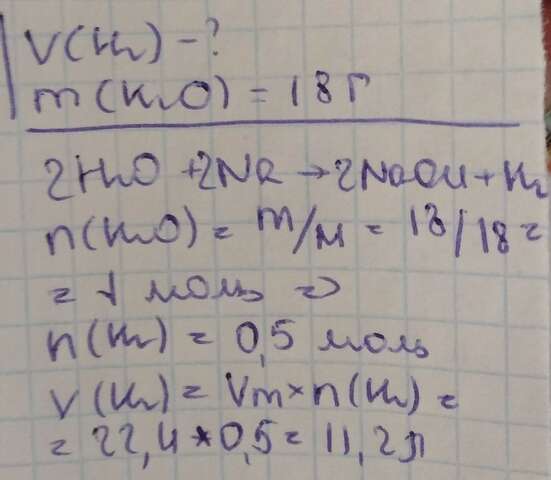 V(H₂) - ?
m(H₂O) = 18 г
2H₂O + 2Na → 2NaOH + H₂
n(H₂O) = m/M = 18/18 =
= 1 моль =>
n(H₂) = 0,5 моль
V(H₂) = Vm × n(H₂) =
= 22,4 * 0,5 = 11,2 л